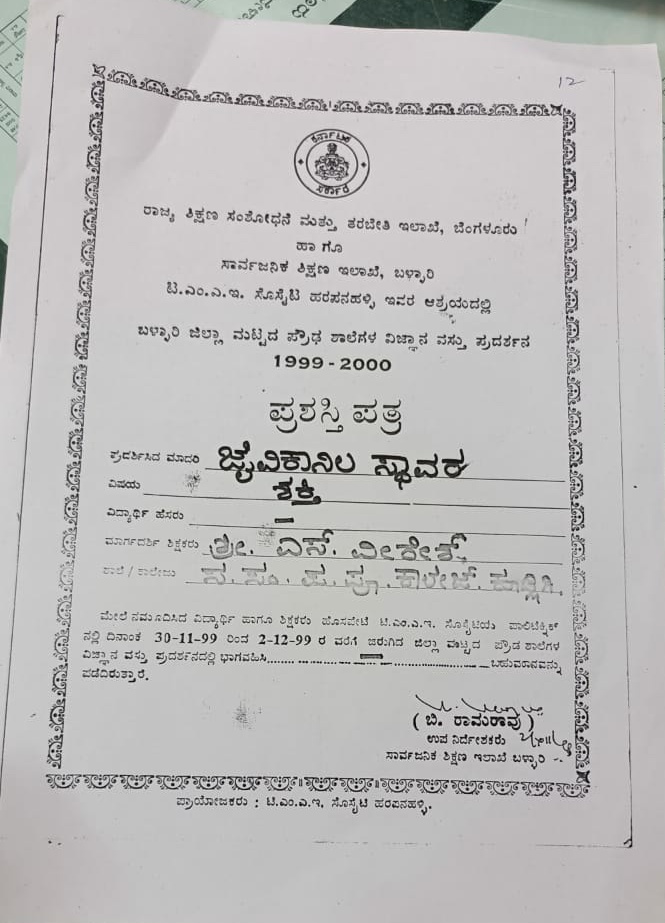 12
ಕರ್ನಾಟಕ
ಸರ್ಕಾರ
ರಾಜ್ಯ ಶಿಕ್ಷಣ ಸಂಶೋಧನೆ ಮತ್ತು ತರಬೇತಿ ಇಲಾಖೆ, ಬೆಂಗಳೂರು
ಹಾಗೂ
ಸಾರ್ವಜನಿಕ ಶಿಕ್ಷಣ ಇಲಾಖೆ, ಬಳ್ಳಾರಿ
ಟಿ.ಎಂ.ಎ.ಇ. ಸೊಸೈಟಿ ಹರಪನಹಳ್ಳಿ ಇವರ ಆಶ್ರಯದಲ್ಲಿ
ಬಳ್ಳಾರಿ ಜಿಲ್ಲಾ ಮಟ್ಟದ ಪ್ರೌಢ ಶಾಲೆಗಳ ವಿಜ್ಞಾನ ವಸ್ತು ಪ್ರದರ್ಶನ
1999-2000
ಪ್ರಶಸ್ತಿ ಪತ್ರ
ಪ್ರದರ್ಶಿಸಿದ ಮಾದರಿ ಜೈವಿಕಾನಿಲ ಸ್ಥಾವರ
ವಿಷಯ ಶಕ್ತಿ
ವಿದ್ಯಾರ್ಥಿ ಹೆಸರು —
ಮಾರ್ಗದರ್ಶಿ ಶಿಕ್ಷಕರು ಶ್ರೀ. ಎಸ್.
ಶಾಲೆ / ಕಾಲೇಜು ಸ. ಸಂ. ಪ. ಪೂ. ಕಾಲೇಜ್.
ಮೇಲೆ ನಮೂದಿಸಿದ ವಿದ್ಯಾರ್ಥಿ ಹಾಗೂ ಶಿಕ್ಷಕರು ಹೊಸಪೇಟೆ ಟಿ.ಎಂ.ಎ.ಇ. ಸೊಸೈಟಿಯ ಪಾಲಿಟೆಕ್ನಿಕ್
ನಲ್ಲಿ ದಿನಾಂಕ 30-11-99 ರಿಂದ 2-12-99 ರ ವರೆಗೆ ಜರುಗಿದ ಜಿಲ್ಲಾ ಮಟ್ಟದ ಪ್ರೌಢ ಶಾಲೆಗಳ
ವಿಜ್ಞಾನ ವಸ್ತು ಪ್ರದರ್ಶನದಲ್ಲಿ ಭಾಗವಹಿಸಿ.................. — .................. ಬಹುಮಾನವನ್ನು
ಪಡೆದಿರುತ್ತಾರೆ.
( ಬಿ. ರಾಮರಾವು )
ಉಪ ನಿರ್ದೇಶಕರು
ಸಾರ್ವಜನಿಕ ಶಿಕ್ಷಣ ಇಲಾಖೆ ಬಳ್ಳಾರಿ
ಪ್ರಾಯೋಜಕರು : ಟಿ.ಎಂ.ಎ.ಇ, ಸೊಸೈಟಿ ಹರಪನಹಳ್ಳಿ.